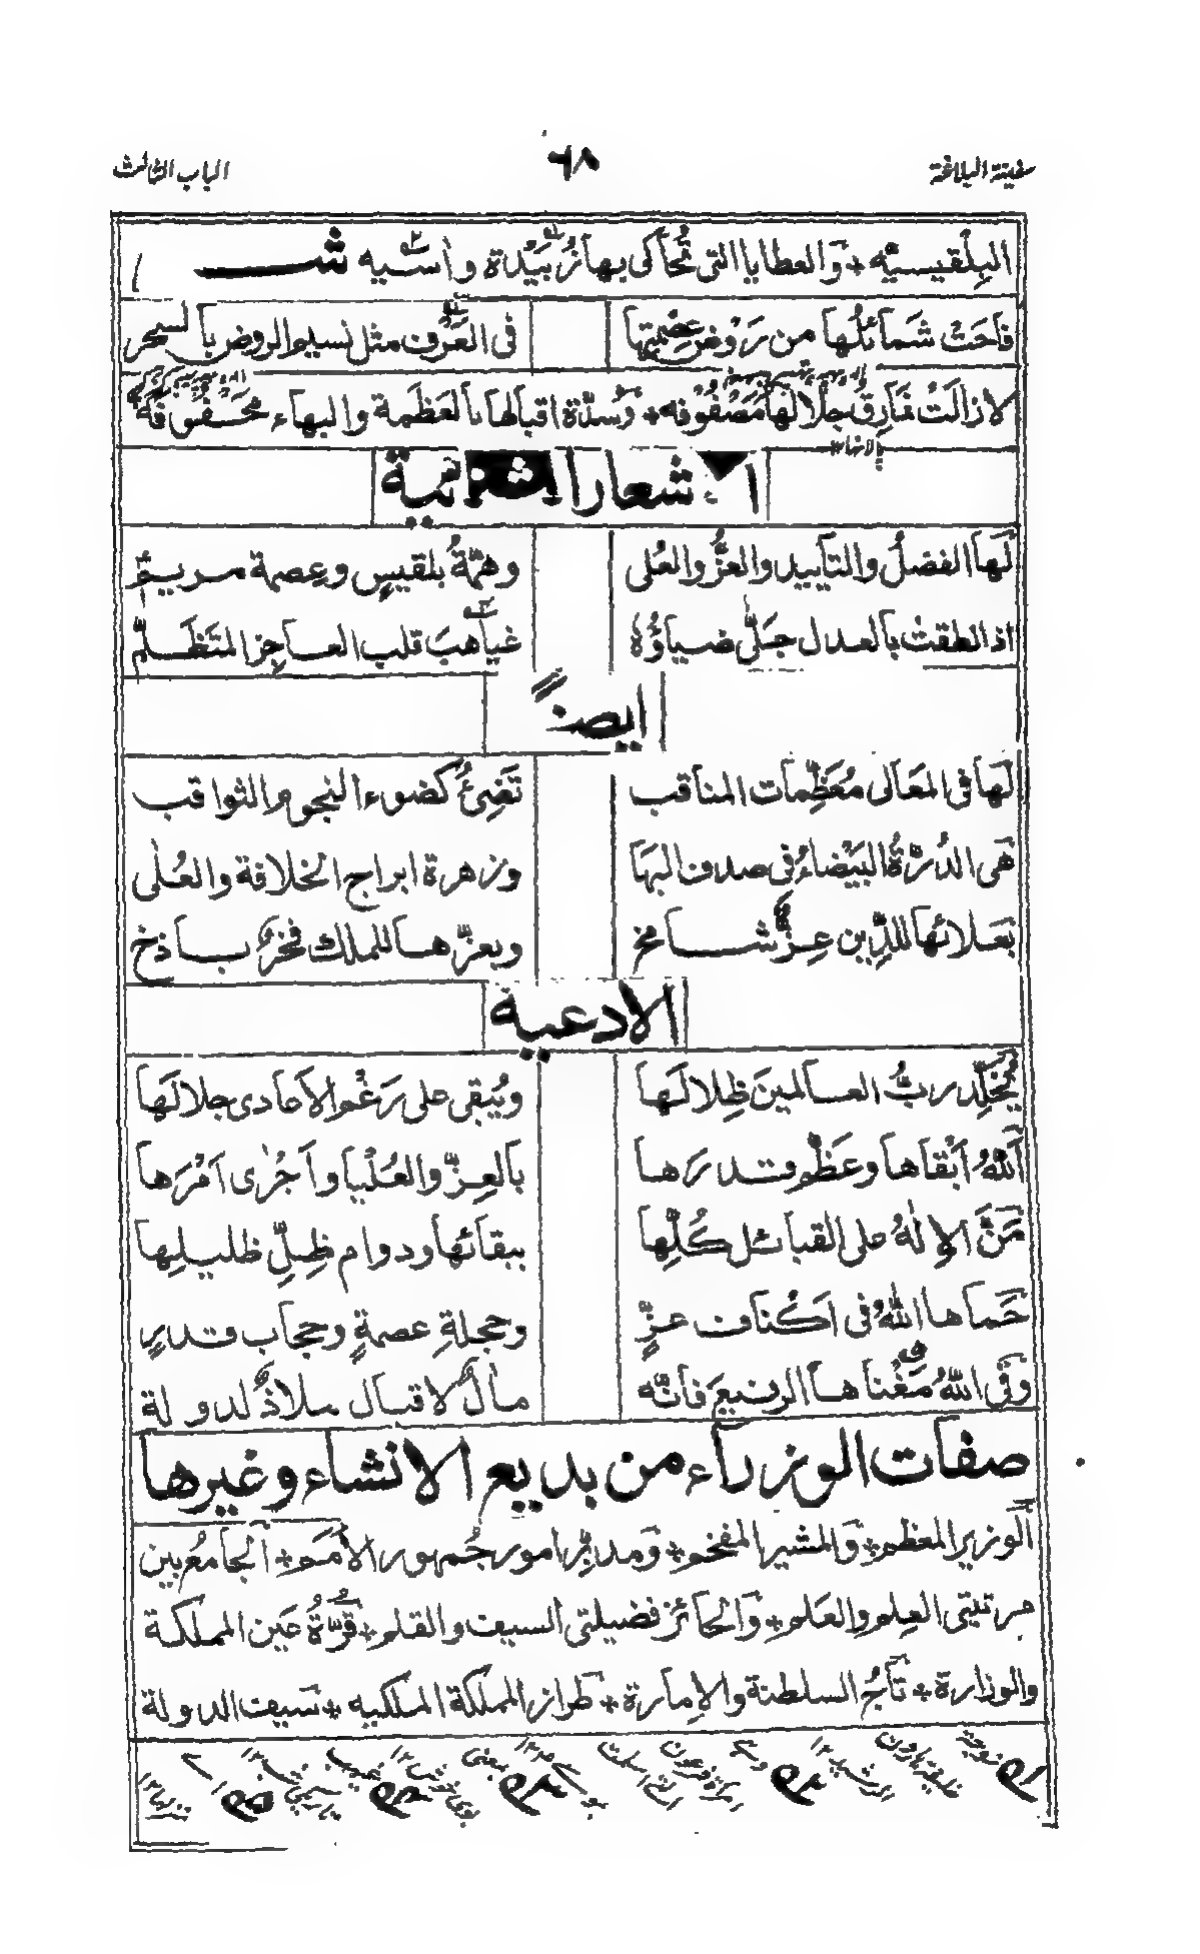 سفينة البلاغة ٦٨ الباب الثالث
البلقيسيّه * وَالعطايا التى تُحاكى بها زُبَيْدة واٰسيه شـــ
فاحَتْ شَمائلُها من رَوْض عِصْمتِها فى العَرْف مثل نسيم الروض بالسحر
لازالَتْ نمَارِقُ جلالها مَصْفُوفه * وَسُدّة اقبالها بالعَظَمة والبهاء مَحْفُوفَه
الاشعار الثمانية
لَها الفضلُ والتأييد والعزُّ والعُلى وهمّةُ بلقيسٍ وعِصمة مريم
اذا لطقت بالعدل جَلّى ضياؤُهُ غياهبَ قلب العاجِز المتَظَلّم
ايضاً
لَها فى المعَالى مُعَظِّمات المناقب تَضِئُ كضوء النجوم الثواقب
هَى الدُرّةُ البَيْضاءُ فى صدف البها وزهرة ابراج الخلافة والعُلٰى
بَعَلائها للدِّين عِزٌّ شامخ وبعزّها للملك فخرٌ باذخ
الادعية
يُخَلِّد ربُّ العالمينَ ظِلالَها ويُبقى على رَغْم الاَعادى جلالَها
اَللّٰهُ اَبْقاها وعَظّم قدرَها بالعِزّ والعُلْيا واَجْرٰى اَمْرَها
مَنَّ الاِلٰهُ على القبائل كُلِّها ببقائها ودوام ظِلِّ ظليلِها
حَماها اللّٰهُ فى اَكْناف عزٍّ وحجلةِ عصمةٍ وحجاب قديرٍ
وقّى اللّٰهُ مَغْناها الرفيعَ فانّه مآلٌ لاقبال ملاذٌ لدولة
صفات الوزرآء من بديع الانشاء وغيرها
اَلوزير المعظم * وَالمشير المفخم * وَمدبّر امور جُمهور الاُمَم * اَلجامعُ بين
مرتبتى العِلم والعَلم * وَالحائز فضيلتى السيف والقلم * قُرّةُ عَين المملكة
والوزارة * تَاجُ السلطنة والاِمارة * طراز المملكة الملكيه * سَيف الدولة